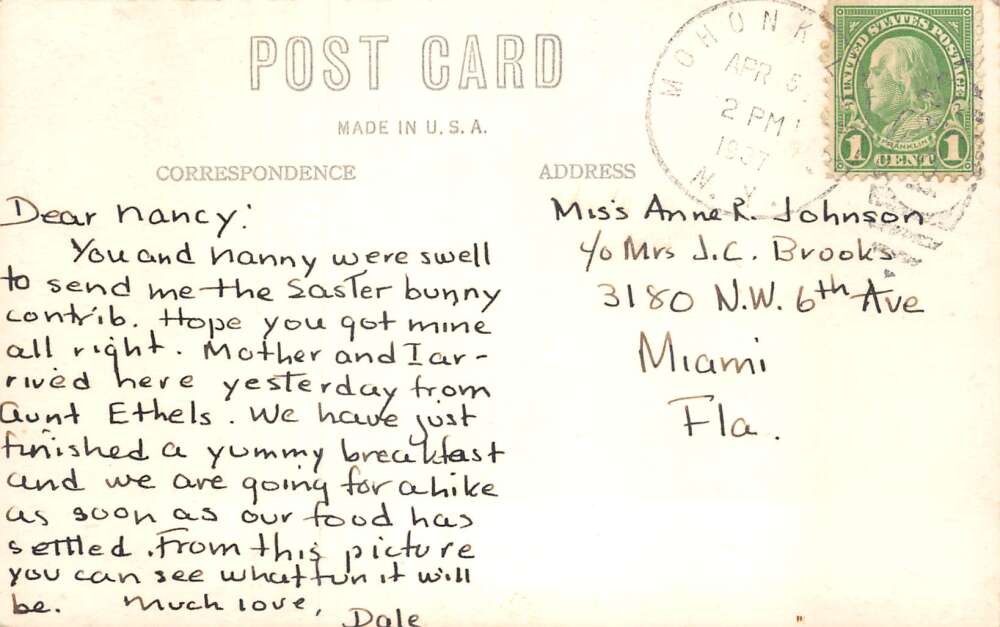 POST CARD
MADE IN U.S.A.
CORRESPONDENCE
ADDRESS
MOHONK
APR 5
2 PM
1937
N.Y.
UNITED STATES POSTAGE
FRANKLIN
1 CENT 1
Dear Nancy:
You and Nanny were swell
to send me the Saster bunny
contrib. Hope you got mine
all right. Mother and I ar-
rived here yesterday from
Aunt Ethels. We have just
finished a yummy breakfast
and we are going for a hike
as soon as our food has
settled. From this picture
you can see what fun it will
be. Much love,
Dale
Miss Anne R. Johnson
c/o Mrs J.C. Brooks
3180 N.W. 6th Ave
Miami
Fla.